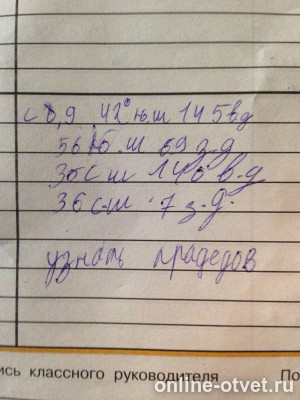 с 8,9 42° ю.ш 145 в.д
56 ю.ш 69 з.д
36 с ш 140 в.д
36 с.ш 7 з.д.
узнать прадедов
ись классного руководителя По
online-otvet.ru